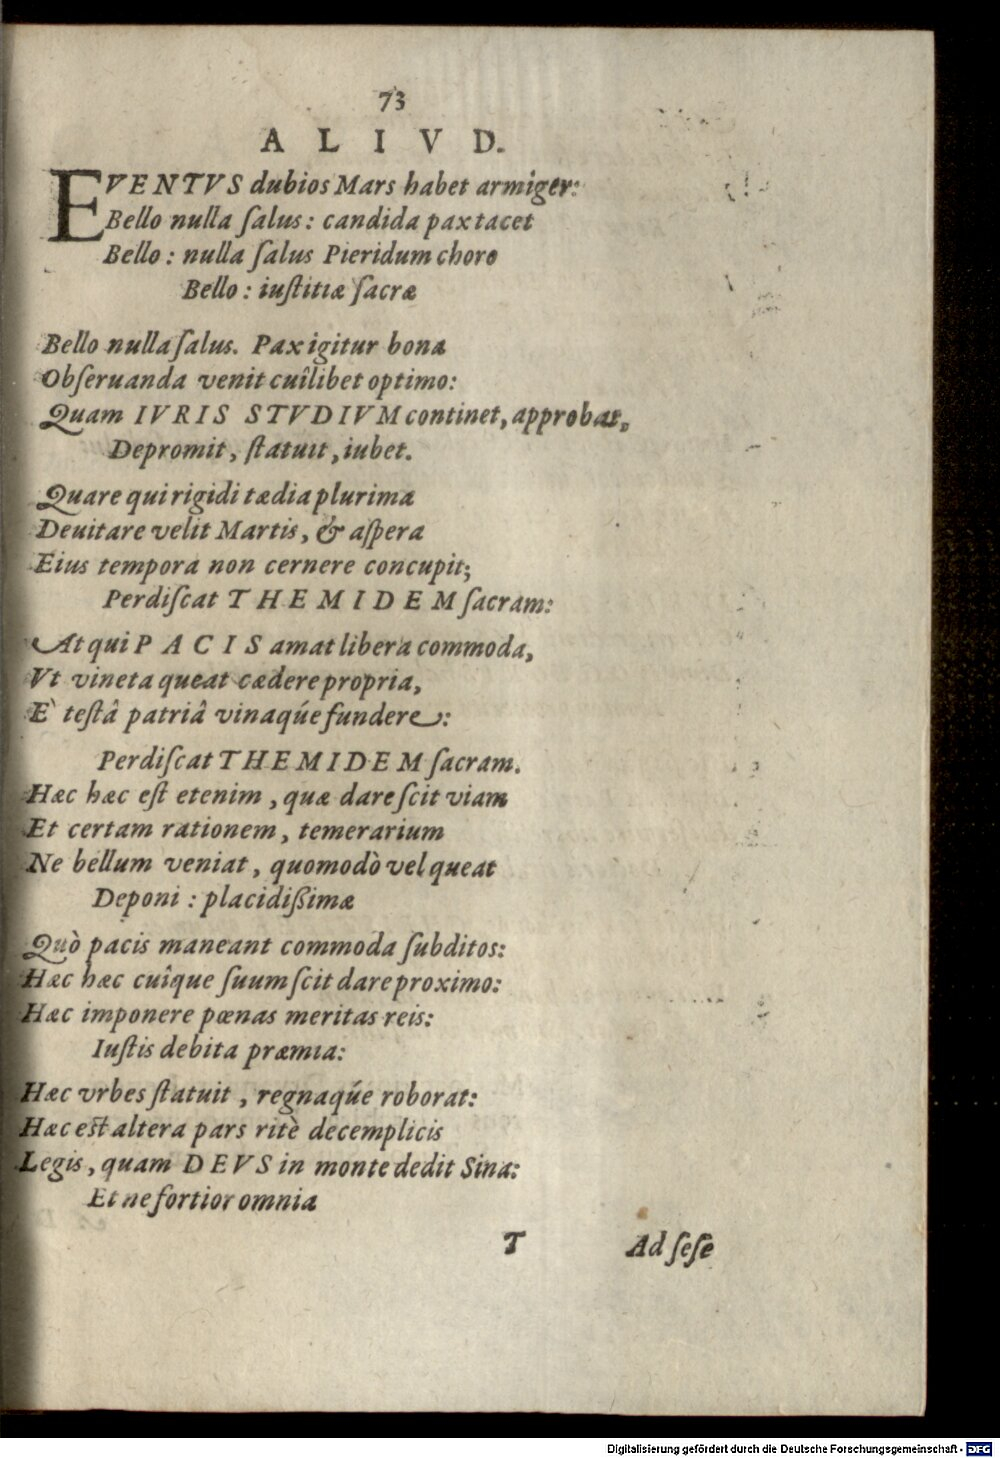 73
ALIVD.
EVENTVS dubios Mars habet armiger:
Bello nulla ſalus: candida pax tacet
Bello: nulla ſalus Pieridum choro
Bello: iuſtitiæ ſacræ
Bello nulla ſalus. Pax igitur bona
Obſeruanda venit cuîlibet optimo:
Quam IVRIS STVDIVM continet, approbat,
Depromit, ſtatuit, iubet.
Quare qui rigidi tædia plurima
Deuitare velit Martis, & aſpera
Eius tempora non cernere concupit;
Perdiſcat THEMIDEM ſacram:
At qui PACIS amat libera commoda,
Vt vineta queat cædere propria,
E` teſtâ patriâ vinaqúe fundere:
Perdiſcat THEMIDEM ſacram.
Hæc hæc eſt etenim, quæ dare ſcit viam
Et certam rationem, temerarium
Ne bellum veniat, quomodò vel queat
Deponi: placidißimæ
Quò pacis maneant commoda ſubditos:
Hæc hæc cuîque ſuum ſcit dare proximo:
Hæc imponere pœnas meritas reis:
Iuſtis debita præmia:
Hæc vrbes ſtatuit, regnaqúe roborat:
Hæc eſt altera pars ritè decemplicis
Legis, quam DEVS in monte dedit Sina:
Et ne fortior omnia
T Ad ſeſe
Digitalisierung gefördert durch die Deutsche Forschungsgemeinschaft - DFG